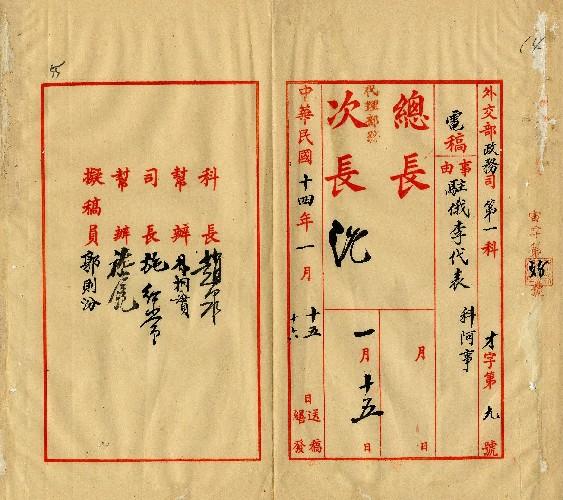 外交部政務司第一科 才字第九號
電稿
事由 駐俄李代表 科阿事
總長 月 日
代理部務
次長 沈 一月十五日
中華民國十四年一月 十五 十六 日 送稿 繕發
科長
幫辦
司長 施紹常
幫辦
擬稿員 郭則汾
14